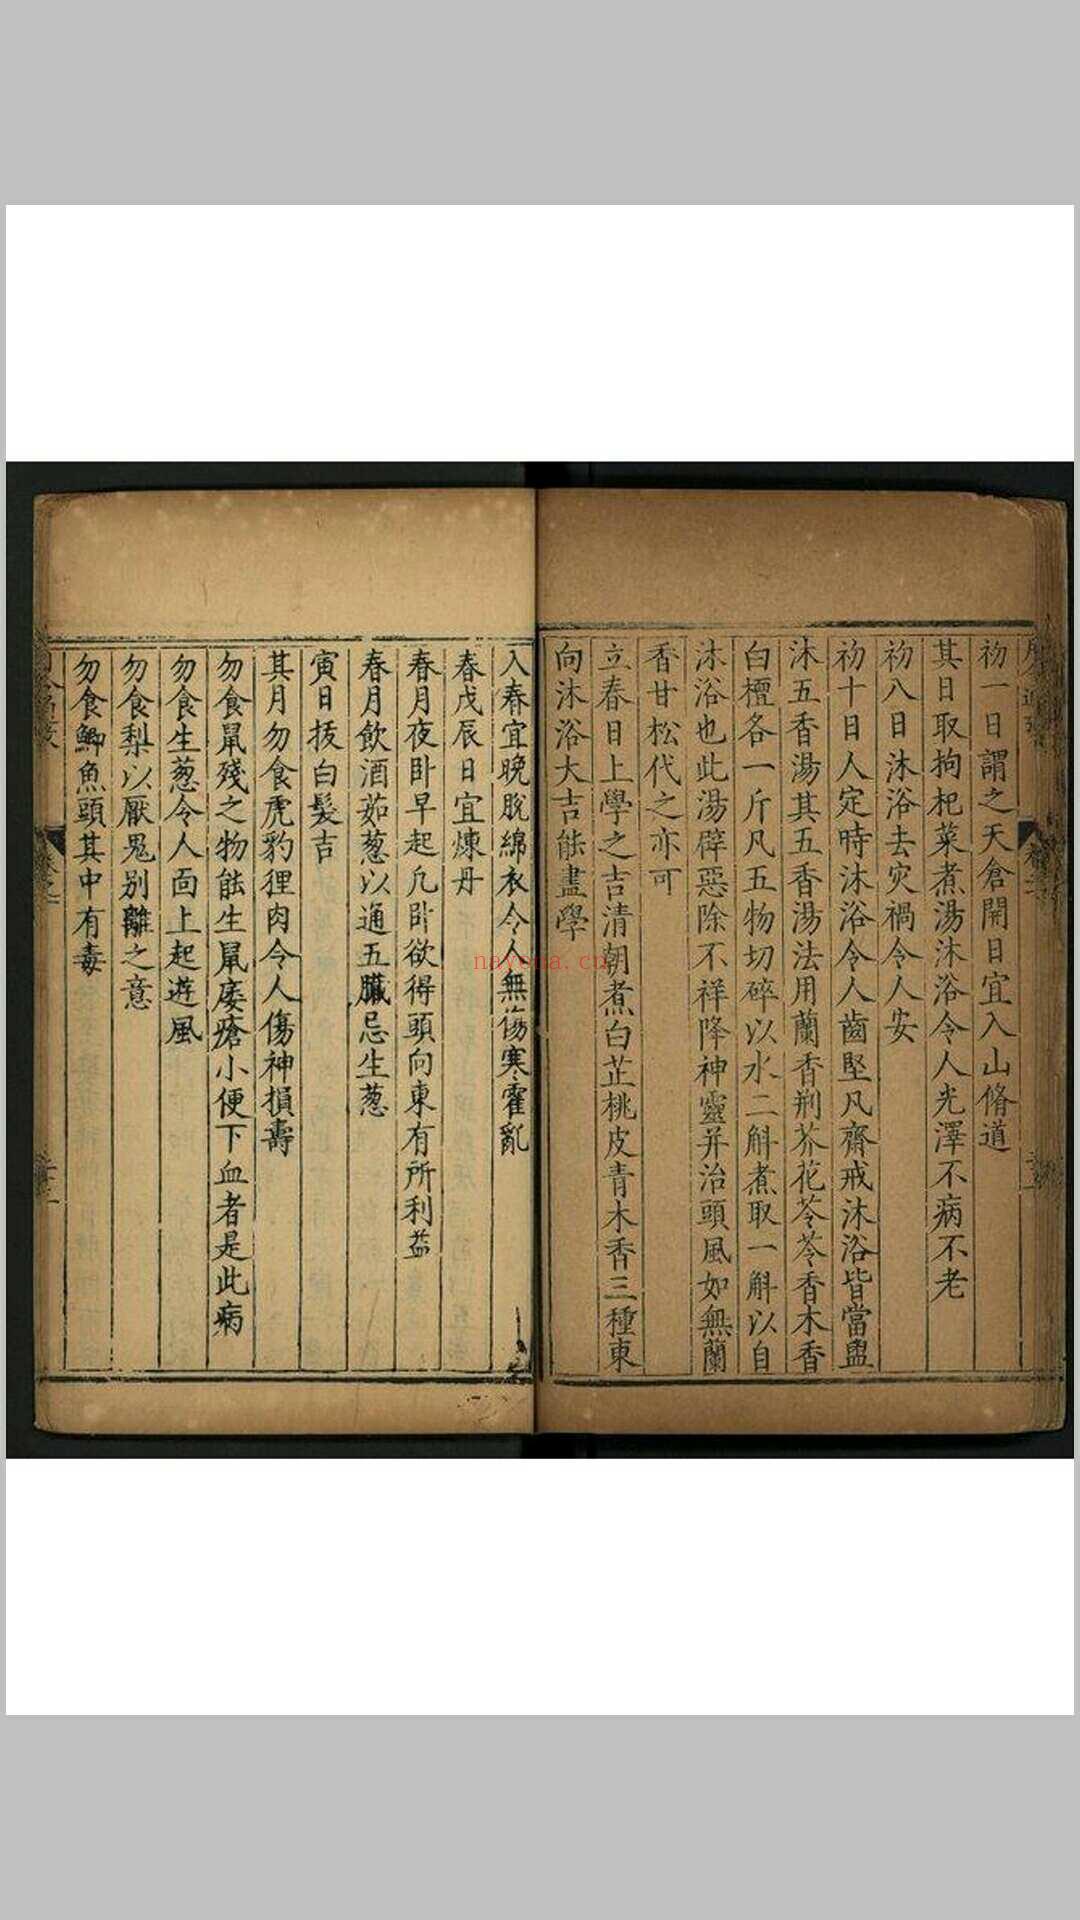 初一日謂之天倉開日宜入山脩道
其日取拘杞菜煮湯沐浴令人光澤不病不老
初八日沐浴去灾禍令人安
初十日人定時沐浴令人齒堅凡齋戒沐浴皆當盥
沐五香湯其五香湯法用蘭香荆芥花苓苓香木香
白檀各一斤凡五物切碎以水二斛煮取一斛以自
沐浴也此湯辟惡除不祥降神靈并治頭風如無蘭
香甘松代之亦可
立春日上學之吉清朝煮白芷桃皮青木香三種東
向沐浴大吉能盡學
入春宜晚脫綿衣令人無傷寒霍亂
春戊辰日宜煉丹
春月夜卧早起凡卧欲得頭向東有所利益
春月飲酒茹葱以通五臟忌生葱
寅日拔白髮吉
其月勿食虎豹狸肉令人傷神損壽
勿食鼠殘之物能生鼠瘻瘡小便下血者是此病
勿食生葱令人面上起遊風
勿食梨以厭鬼别離之意
勿食鯽魚頭其中有毒
nayona.cn